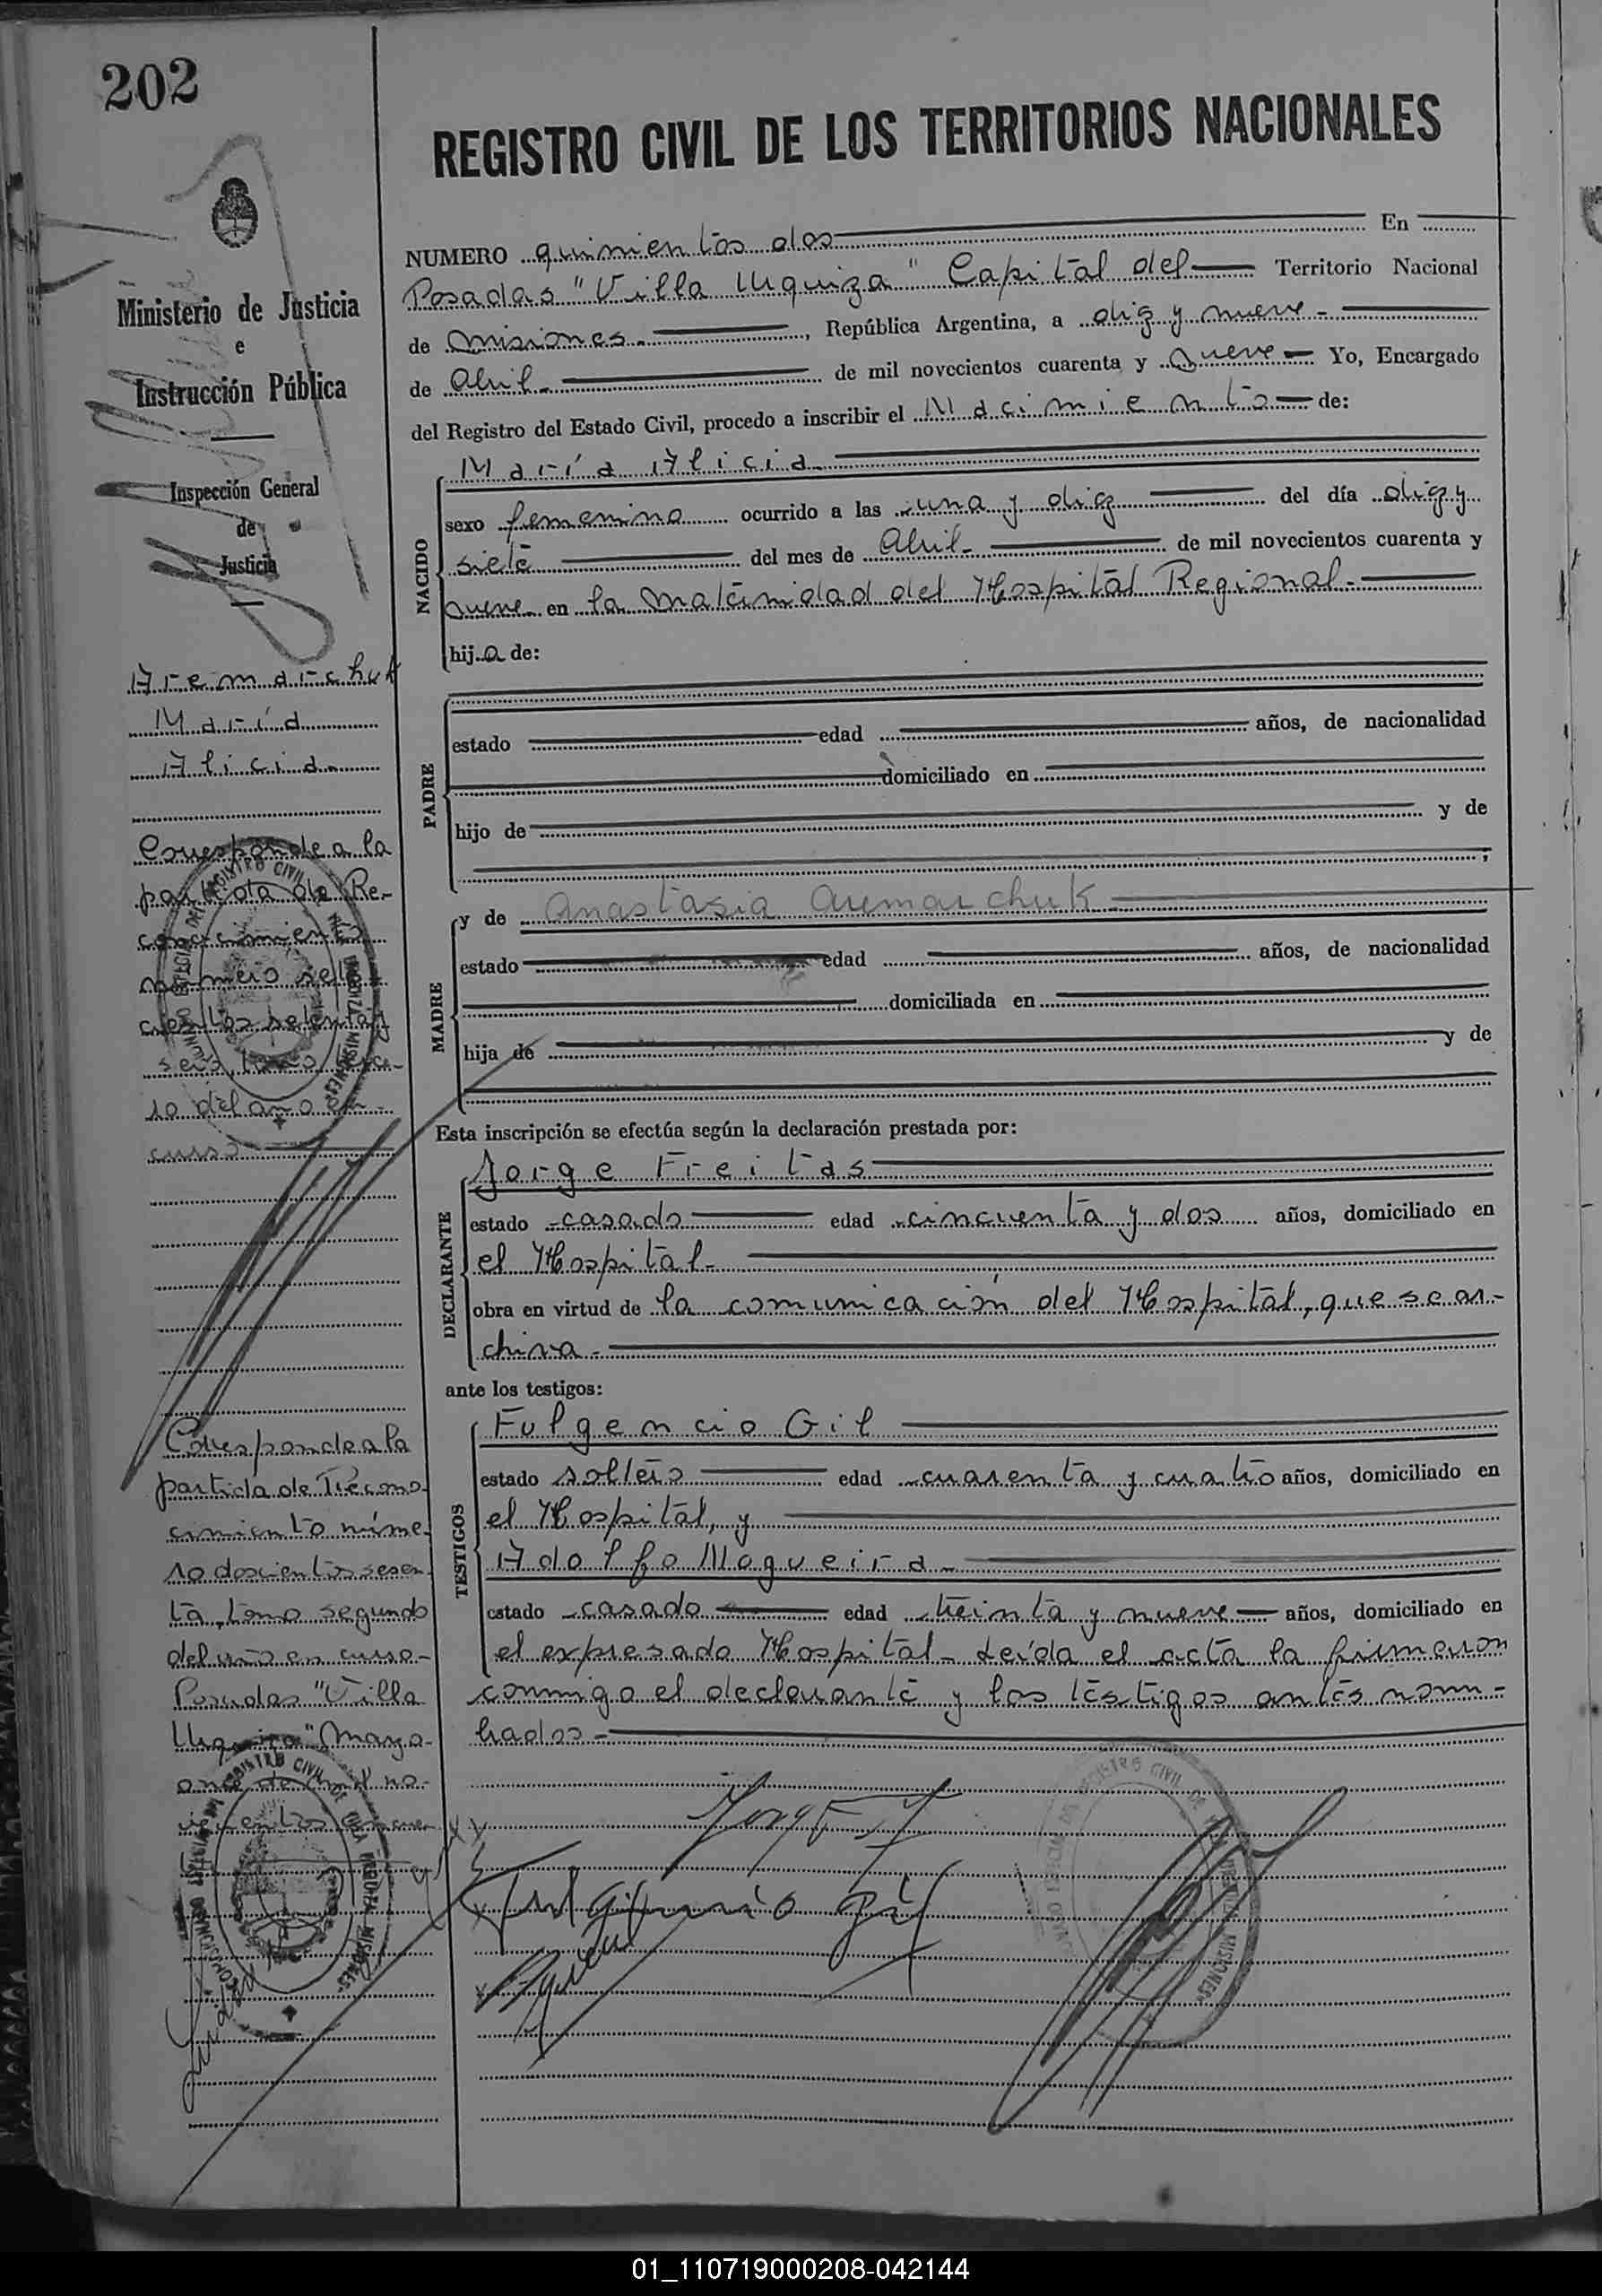 202
REGISTRO CIVIL DE LOS TERRITORIOS NACIONALES
Ministerio de Justicia
e
Instrucción Pública
Inspección General
de
Justicia
NUMERO quinientos dos En
Posadas "Villa Urquiza" Capital del Territorio Nacional
de Misiones.-, República Argentina, a diez y nueve-
de Abril- de mil novecientos cuarenta y nueve- Yo, Encargado
del Registro del Estado Civil, procedo a inscribir el Nacimiento de:
NACIDO
María Alicia-
sexo femenino ocurrido a las una y diez del día diez y
siete del mes de Abril- de mil novecientos cuarenta y
nueve en la Maternidad del Hospital Regional.-
hija de:
PADRE
estado edad años, de nacionalidad
domiciliado en
hijo de y de
;
MADRE
y de Anastasia Aremarchuk
estado edad años, de nacionalidad
domiciliada en
hija de y de
Esta inscripción se efectúa según la declaración prestada por:
DECLARANTE
Jorge Freitas
estado casado edad cincuenta y dos años, domiciliado en
el Hospital-
obra en virtud de la comunicación del Hospital, que se ar-
chiva-
ante los testigos:
TESTIGOS
Fulgencio Gil
estado soltero edad cuarenta y cuatro años, domiciliado en
el Hospital, y
Adolfo Magueira-
estado casado edad treinta y nueve años, domiciliado en
el expresado Hospital- Leída el acta la firmaron
conmigo el declarante y los testigos antes nom-
brados-
Fulgencio Gil
Aremarchuk
María
Alicia-
Corresponde a la
partida de Re-
conocimiento
número sete
cientos setenta y
seis, tomo terce-
ro del año en
curso
Corresponde a la
partida de Recono-
cimiento núme-
ro doscientos sesen-
ta, tomo segundo
del año en curso-
Posadas "Villa
Urquiza" Mayo
once de mil no-
vecientos cincuen
REGISTRO CIVIL DE VILLA URQUIZA MISIONES
01_110719000208-042144